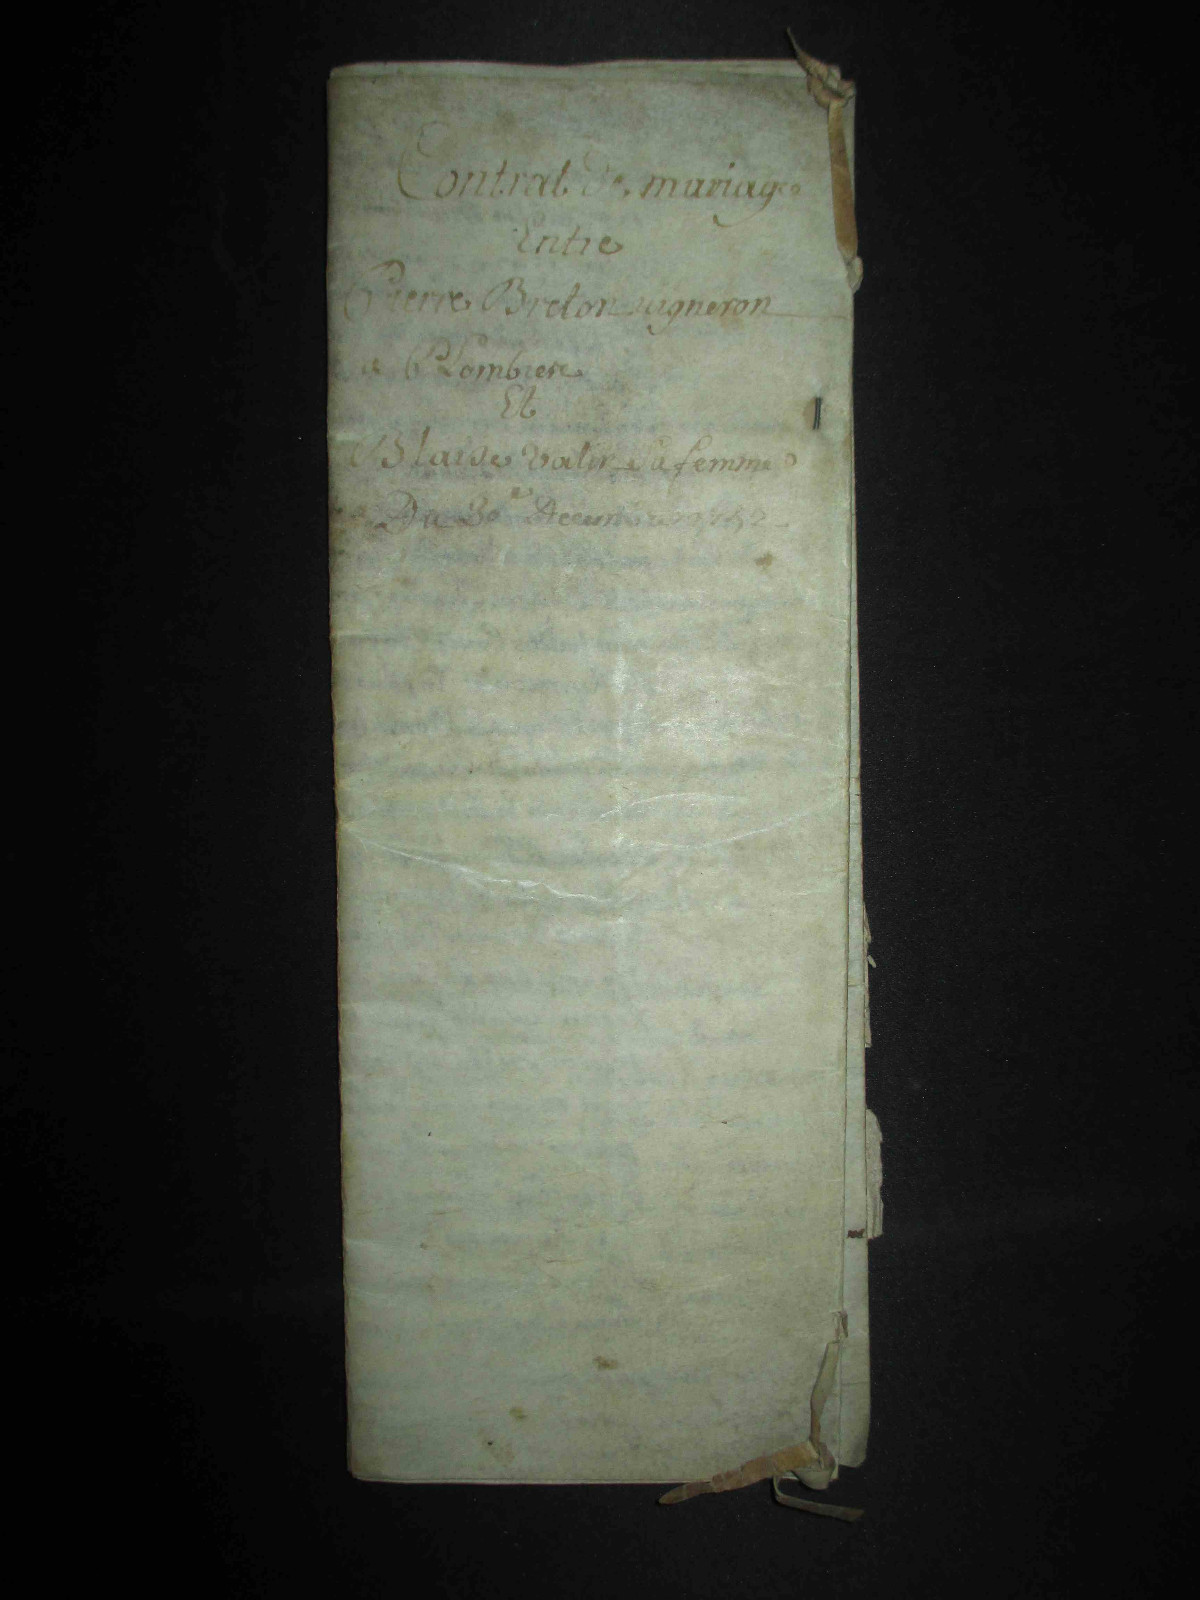 Contrat de mariage
Entre
Pierre Breton vigneron
a Plombiere
Et
Blaise Vatin sa femme
Du 30e decembre 1752